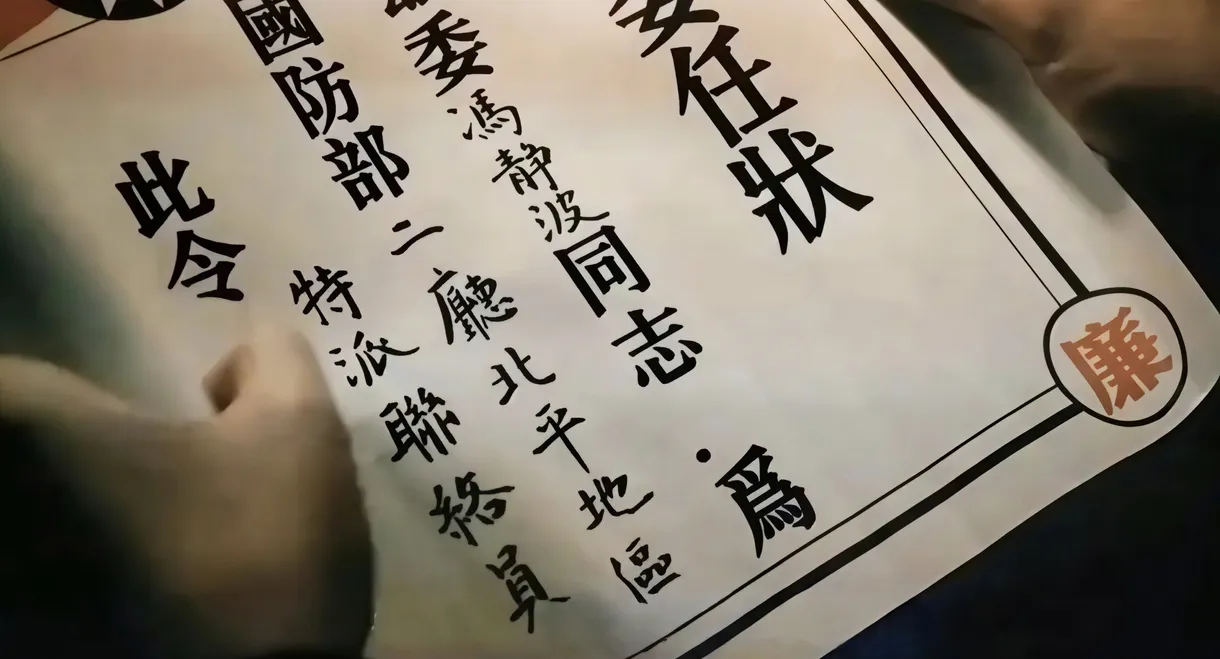 委任狀
委馮靜波同志·爲
國防部二廳北平地區
特派聯絡員
此令
廉